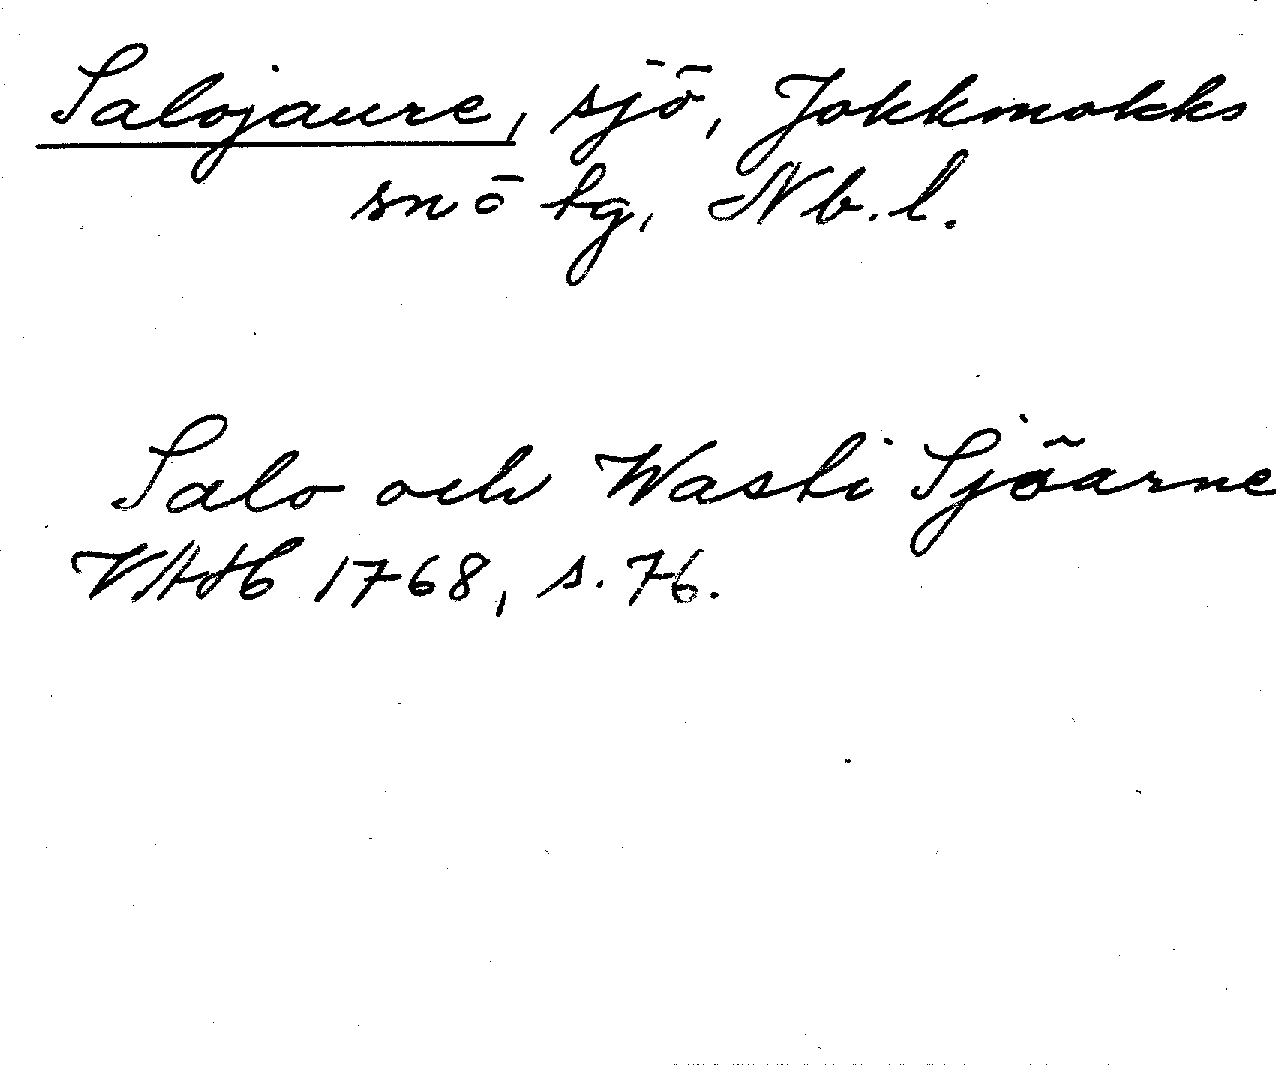 Salojaure, sjö, Jokkmokks
snö tg, Nb.l.
Salo och Wasti Sjöarne
VAH 1768, s. 76.